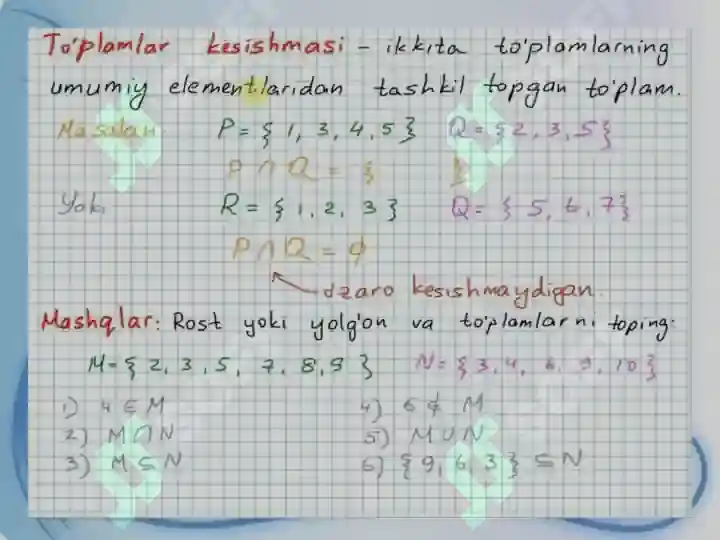 To'plamlar kesishmasi - ikkita to'plamlarning
umumiy elementlaridan tashkil topgan to'plam.
Masalan P = { 1, 3, 4, 5 } Q = { 2, 3, 5 }
P ∩ Q = { }
Yoki R = { 1, 2, 3 } Q = { 5, 6, 7 }
P ∩ Q = ϕ
o'zaro kesishmaydigan.
Mashqlar: Rost yoki yolg'on va to'plamlarni toping:
M = { 2, 3, 5, 7, 8, 9 } N = { 3, 4, 6, 9, 10 }
1) 4 ∈ M 4) 6 ∉ M
2) M ∩ N 5) M ∪ N
3) M ⊆ N 6) { 9, 6, 3 } ⊆ N